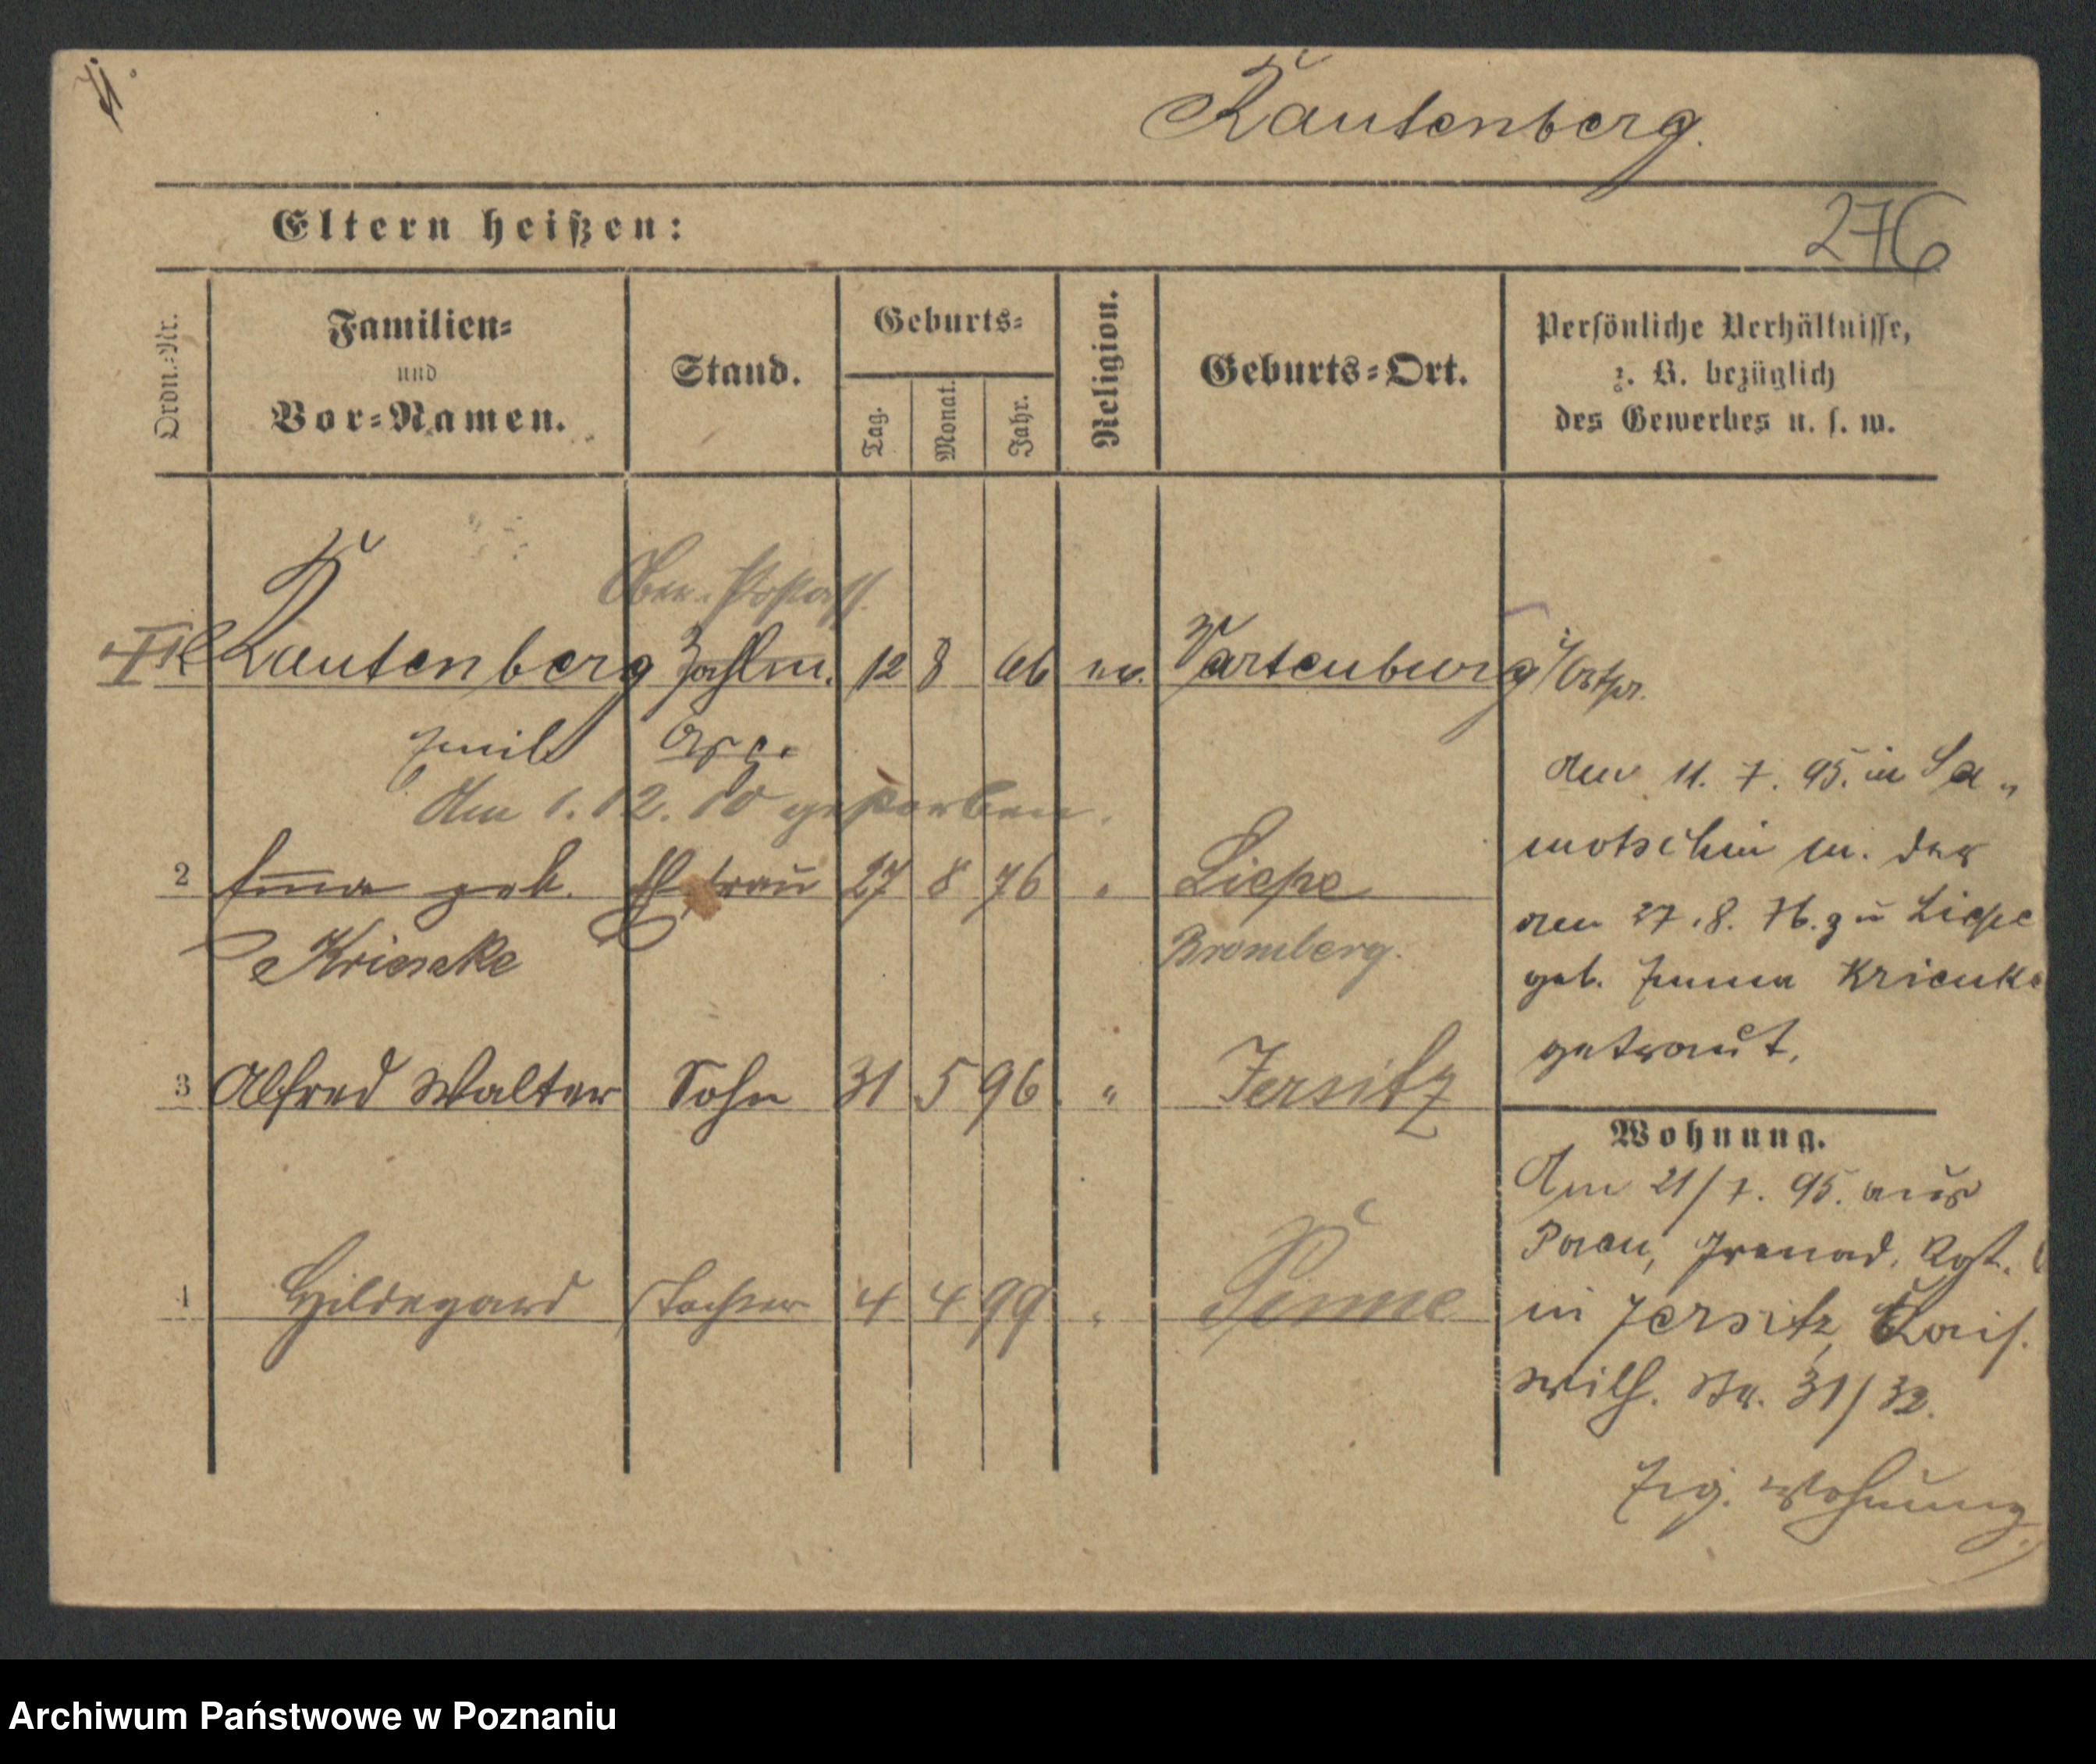 Rautenberg.
Eltern heißen:
276
Ordn.=Nr.
Familien=
und
Vor=Namen.
Stand.
Geburts=
Tag.
Monat.
Jahr.
Religion.
Geburts=Ort.
Persönliche Verhältnisse,
z. B. bezüglich
des Gewerbes u. s. w.
Ober-Postass.
Rautenberg Zahlm. 12 8 66 ev. Wartenburg i/Ostpr.
Emil Asp.
Am 1.12.10 gestorben.
2 Emma geb. Ehefrau 27 8 76 " Liepe
Krienke Bromberg.
3 Alfred Walter Sohn 31 5 96. " Jersitz
4 Hildegard Tochter 4 4 99 " Pinne
den 11. 7. 95. in Sa-
motschin m. der
den 27.8.76. zu Liepe
geb. Emma Krienke
getraut.
Wohnung.
Am 21/7. 95. aus
Posen, Grenad. Rgt.
in Jersitz, Kais.
Wilh. Str. 31/32.
Eig. Wohnung
Archiwum Państwowe w Poznaniu